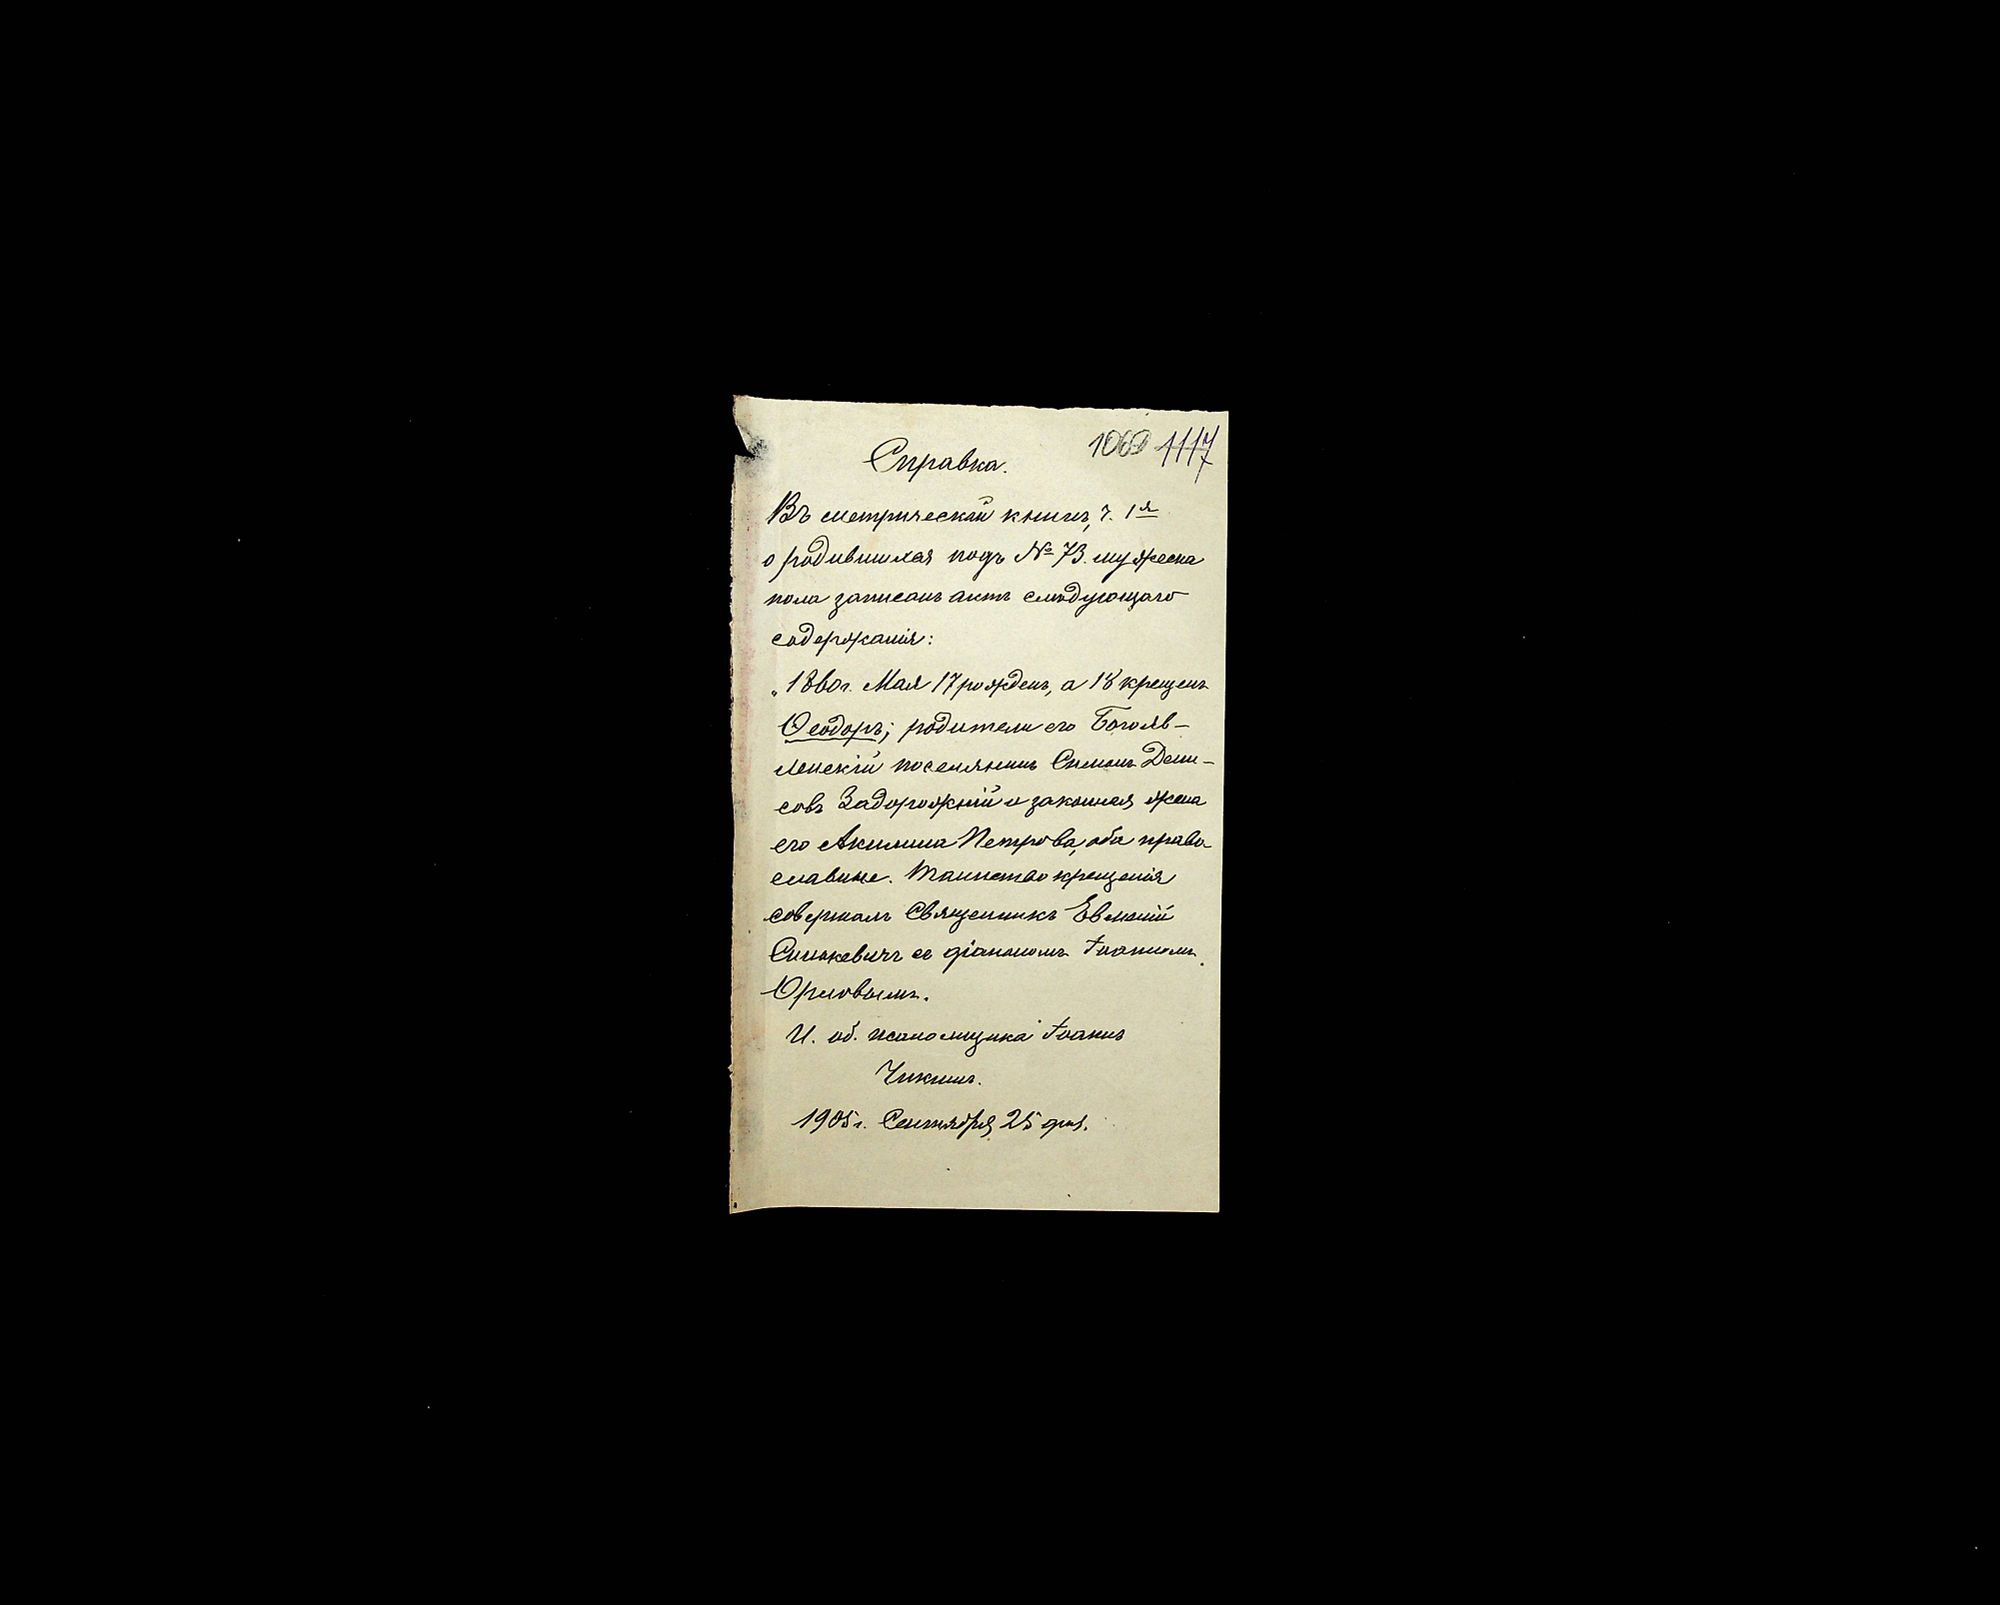 1060 1117
Справка.
Въ метрической книгѣ, ч. 1я
о родившихся подъ № 73. мужеска
пола записанъ актъ слѣдующаго
содержанія:
„1860г. Мая 17 рожденъ, а 18 крещенъ
Ѳеодоръ; родители его Богояв-
ленскій поселянинъ Симонъ Дени-
совъ Задорожній и законная жена
его Акилина Петрова, оба право
славные. Таинство крещенія
совершалъ Священникъ Евменій
Синькевичъ съ діакономъ Іоанномъ
Орловымъ.
И. об. псаломщика Іоаннъ
Чикинъ.
1905г. Сентября 25 дня.